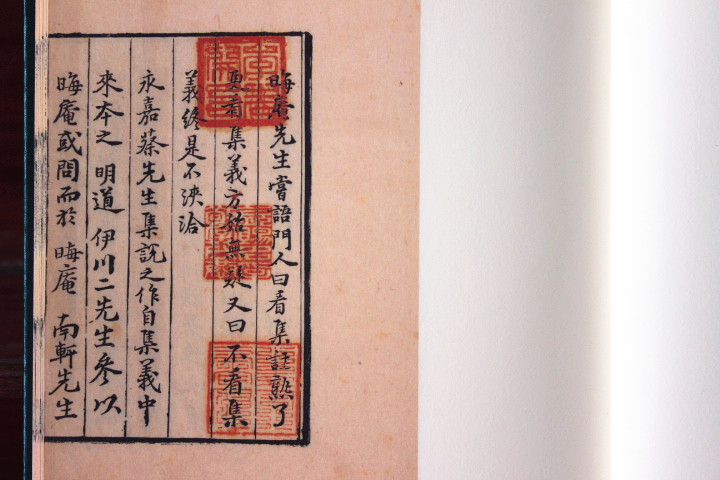 晦庵先生嘗語門人曰看集註熟了
更看集義方始無疑又曰不看集
義終是不浹洽
永嘉蔡先生集說之作自集義中
來本之明道伊川二先生參以
晦庵或問而於晦庵南軒先生